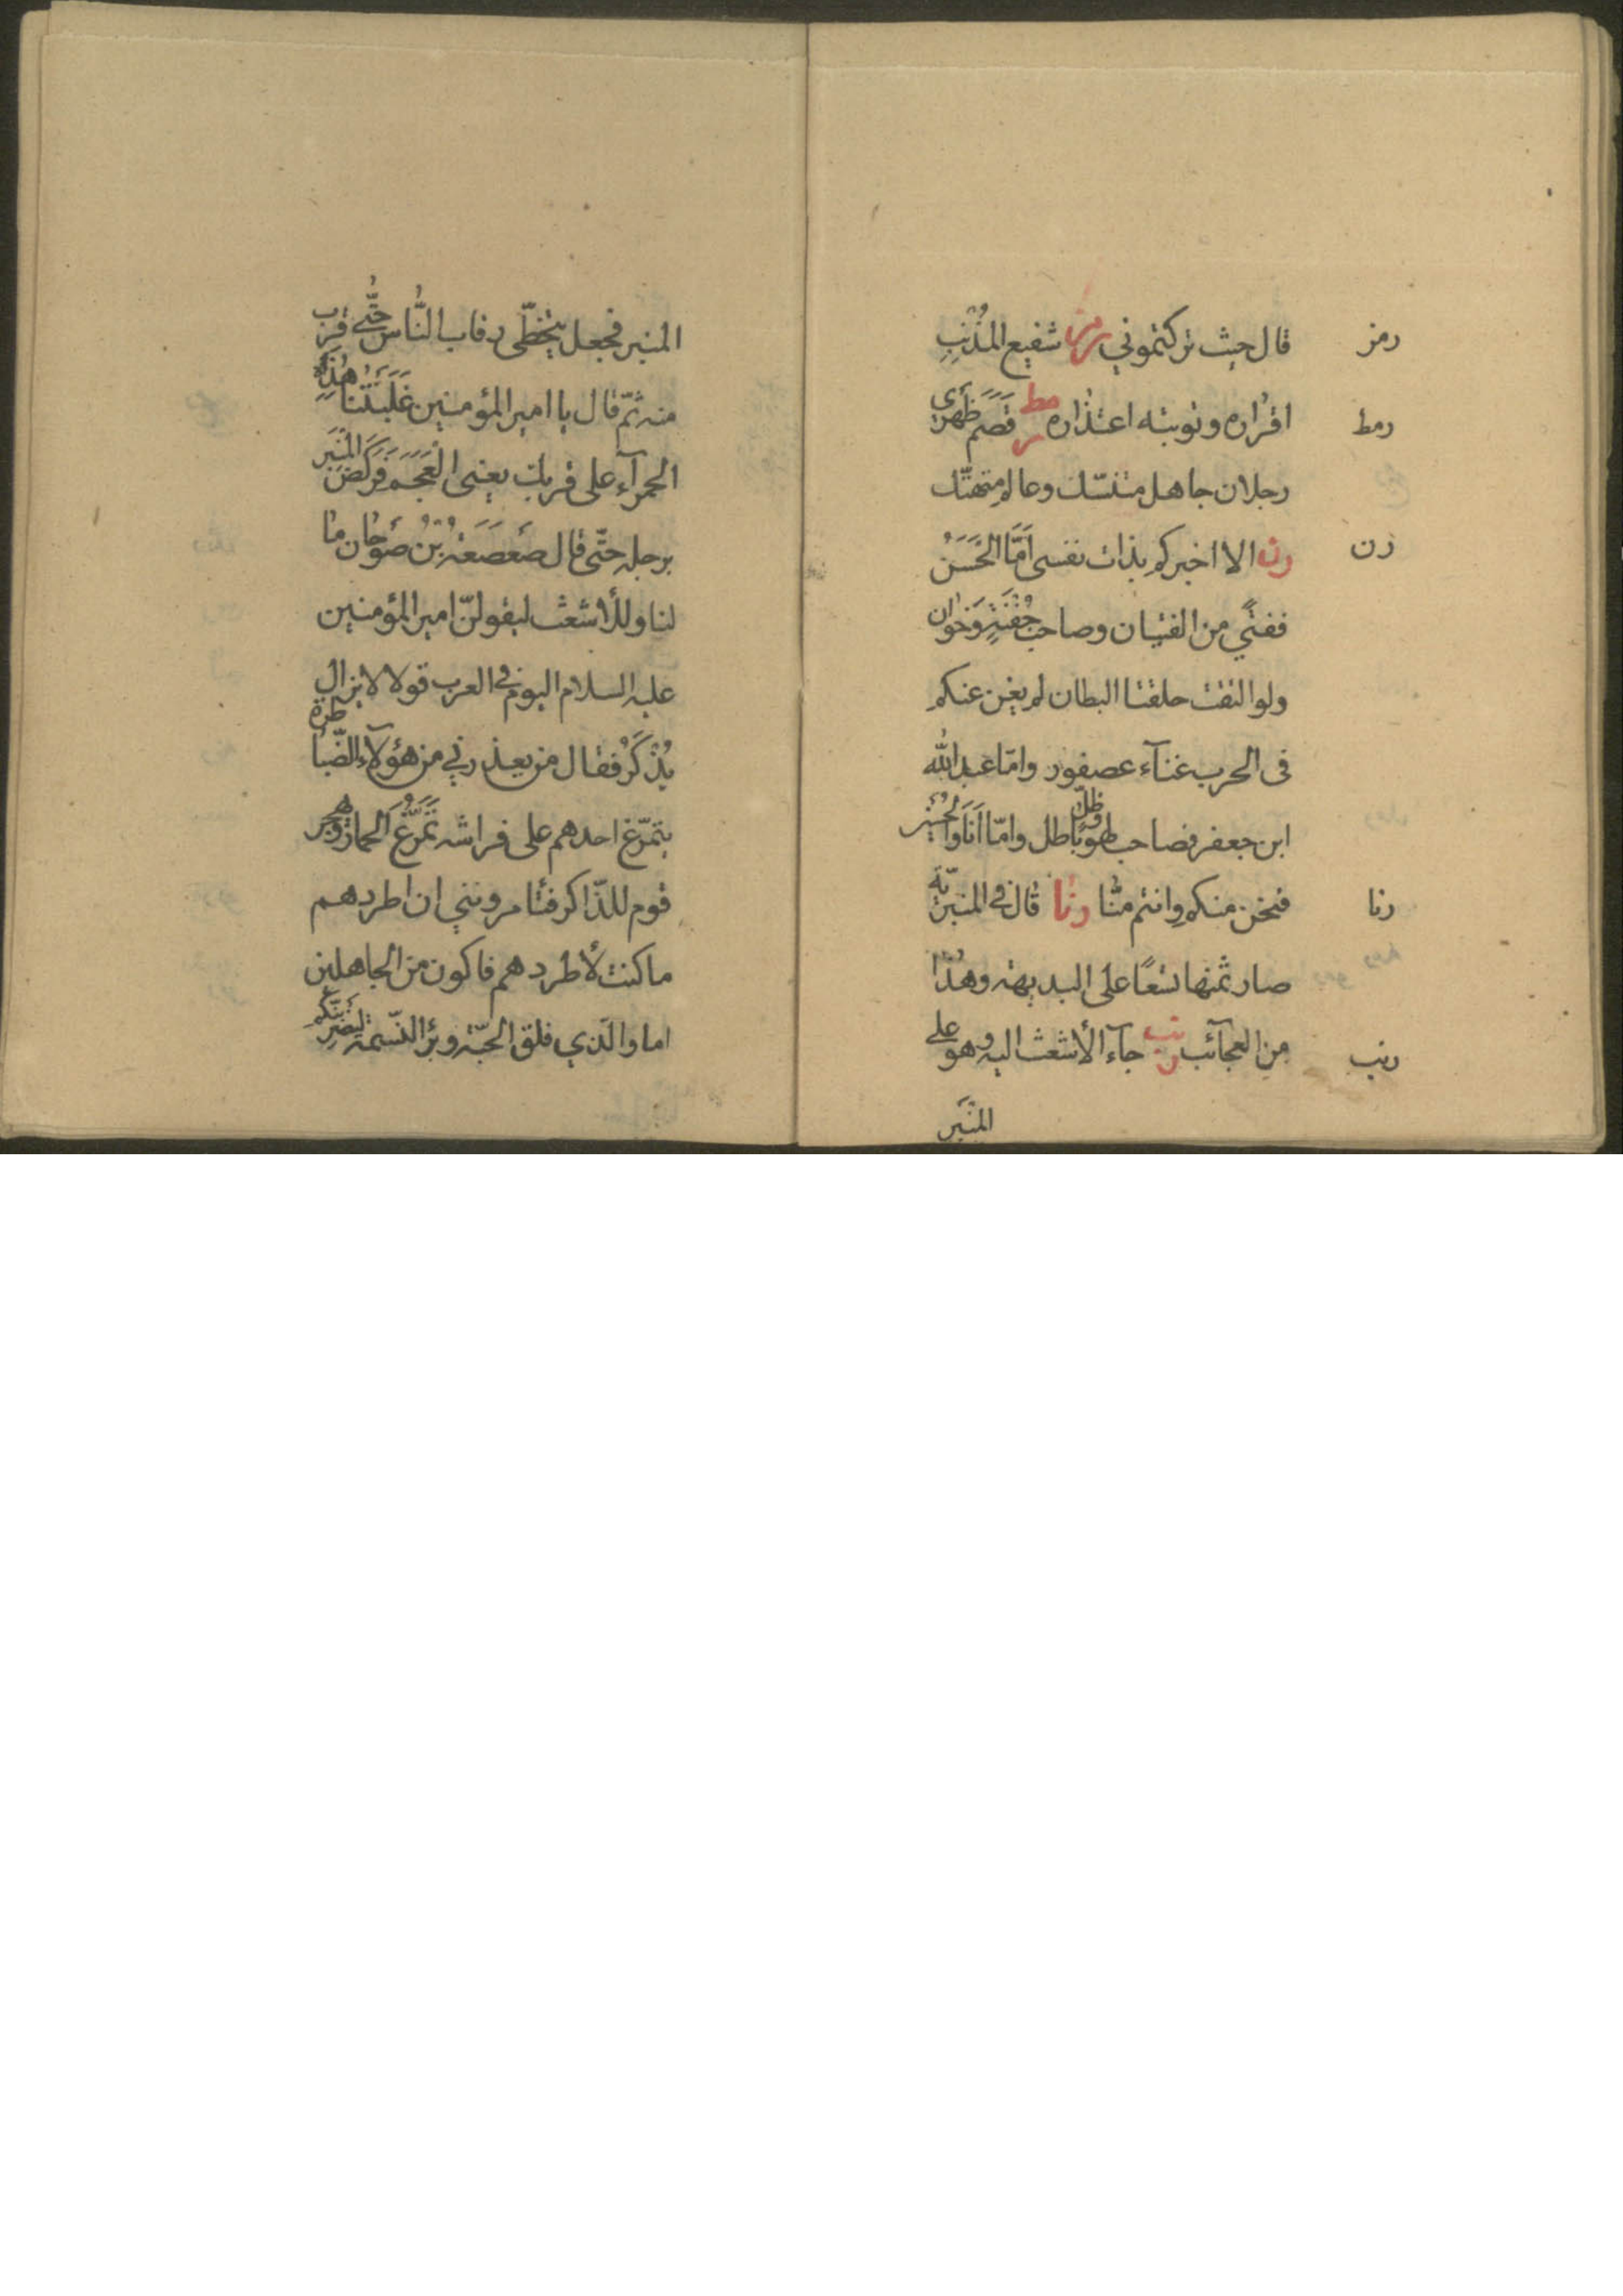 رمز
قال حيث تركتموني رمز شفيع المذنب
رمط
اقراره وتوبته اعتذاره رمط قصم ظهري
رجلان جاهل متنسّك وعالم متهتّك
رن
رن الا اخبركم بذات نفسي امّا الحَسَن
ففتًي من الفتيان وصاحب جفنةٍ وخوان
ولو التقت حلقتا البطان لم يغن عنكم
فى الحرب غنآء عصفور وامّا عبد الله
ابن جعفر فصاحب لهو وظلّ باطل وامّا اَنَا والحُسَين
رنا
فنحن منكم وانتم منّا رنا قال في المنبريّة
صار ثمنها تسعًا على البديهة وهذا
رنب
مِن العجآئب رنب جآء الأشعث اليه وهو على
المنبَر
المنبر فجعل يتخطّى رقاب النّاس حتّى قرب
منه ثمّ قال يا امير المؤمنين غَلَبَتْنا هٰذِه
الحمرآء على قربك يعنى العَجَم فَرَكَضَ المنبَر
برجله حتّى قال صَعصَعَةُ بْنُ صَوحان ما
لنا وللأشعث ليقولنّ امير المؤمنين
عليه السلام اليوم في العرب قولا لا يزال
يُذْكَرُ فقال من يعذرني من هؤلآء الضّياطرة
يتمرّغ احدهم على فراشه تَمَرُّغَ الحمار ويهجر
قوم للذّاكر فتأمرونني ان اطردهم
ما كنت لأطردهم فاكون من الجاهلين
اما والّذي فلق الحبّة وبرأ النّسمة ليضربنّكم